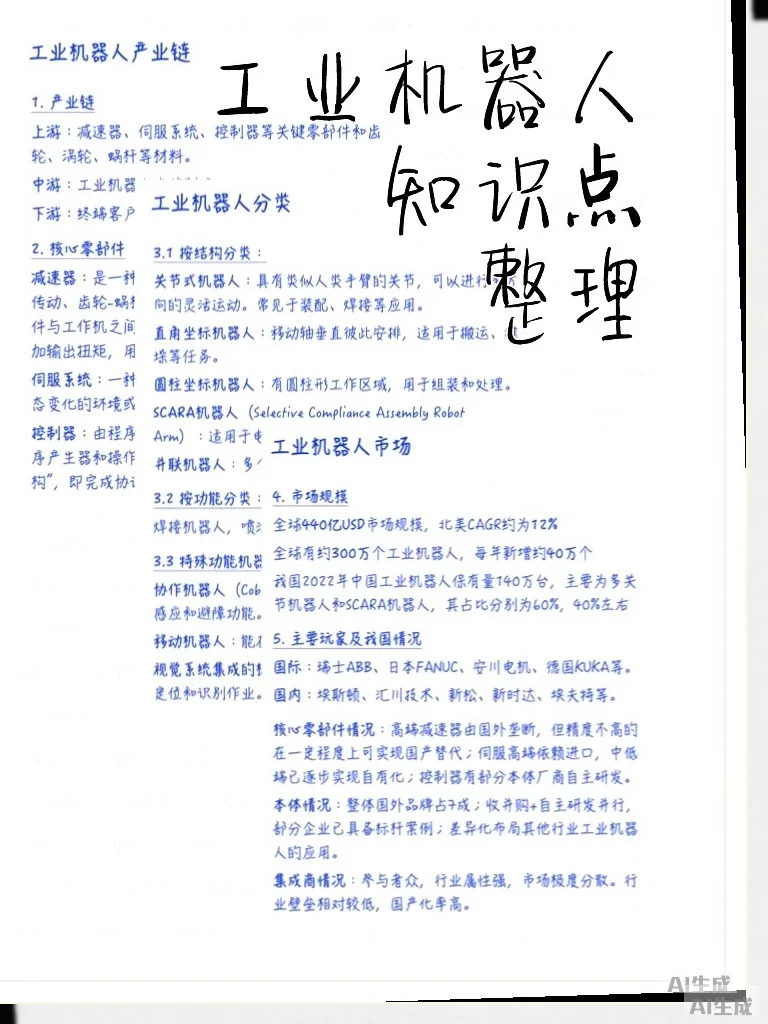 工业机器人
知识点
整理
工业机器人产业链
1. 产业链
上游：减速器、伺服系统、控制器等关键零部件和齿
轮、涡轮、蜗杆等材料。
中游：工业机器
下游：终端客户
2. 核心零部件
减速器：是一种
传动、齿轮-蜗
件与工作机之间
加输出扭矩，用
伺服系统：一种
态变化的环境或
控制器：由程序
序产生器和操作
构”，即完成协
工业机器人分类
3.1 按结构分类：
关节式机器人：具有类似人类手臂的关节，可以进行
向的灵活运动。常见于装配、焊接等应用。
直角坐标机器人：移动轴垂直彼此安排，适用于搬运、
垛等任务。
圆柱坐标机器人：有圆柱形工作区域，用于组装和处理。
SCARA机器人（Selective Compliance Assembly Robot
Arm）：适用于电
并联机器人：多
3.2 按功能分类：
焊接机器人，喷
3.3 特殊功能机器
协作机器人（Cob
感应和避障功能。
移动机器人：能
视觉系统集成的
定位和识别作业。
工业机器人市场
4. 市场规模
全球440亿USD市场规模，北美CAGR约为12%
全球有约300万个工业机器人，每年新增约40万个
我国2022年中国工业机器人保有量140万台，主要为多关
节机器人和SCARA机器人，其占比分别为60%，40%左右
5. 主要玩家及我国情况
国际：瑞士ABB、日本FANUC、安川电机、德国KUKA等。
国内：埃斯顿、汇川技术、新松、新时达、埃夫特等。
核心零部件情况：高端减速器由国外垄断，但精度不高的
在一定程度上可实现国产替代；伺服高端依赖进口，中低
端已逐步实现自有化；控制器有部分本体厂商自主研发。
本体情况：整体国外品牌占7成；收并购+自主研发并行，
部分企业已具备标杆案例；差异化布局其他行业工业机器
人的应用。
集成商情况：参与者众，行业属性强，市场极度分散。行
业壁垒相对较低，国产化率高。
AI生成
AI生成